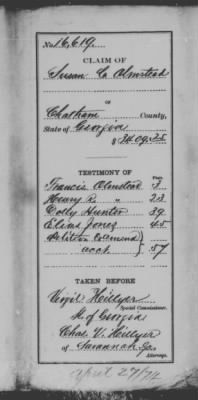 No. 16,619.
CLAIM OF
Susan C. Olmstead
OF
Chatham County,
State of Georgia
$ 3409.25
TESTIMONY OF
Page.
Francis Olmstead 3
Henry R. " 23
Dolly Hunter 39
Elias Jones 45
Petition
acct. } 57
TAKEN BEFORE
Virgil Hillyer
Special Commissioner.
of Georgia
Chas. V. Hillyer
of Savannah, Ga
Attorney.
April 27/74